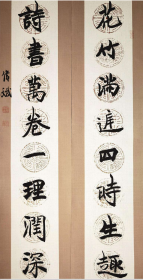 花竹滿四時生趣
詩書萬卷一理深